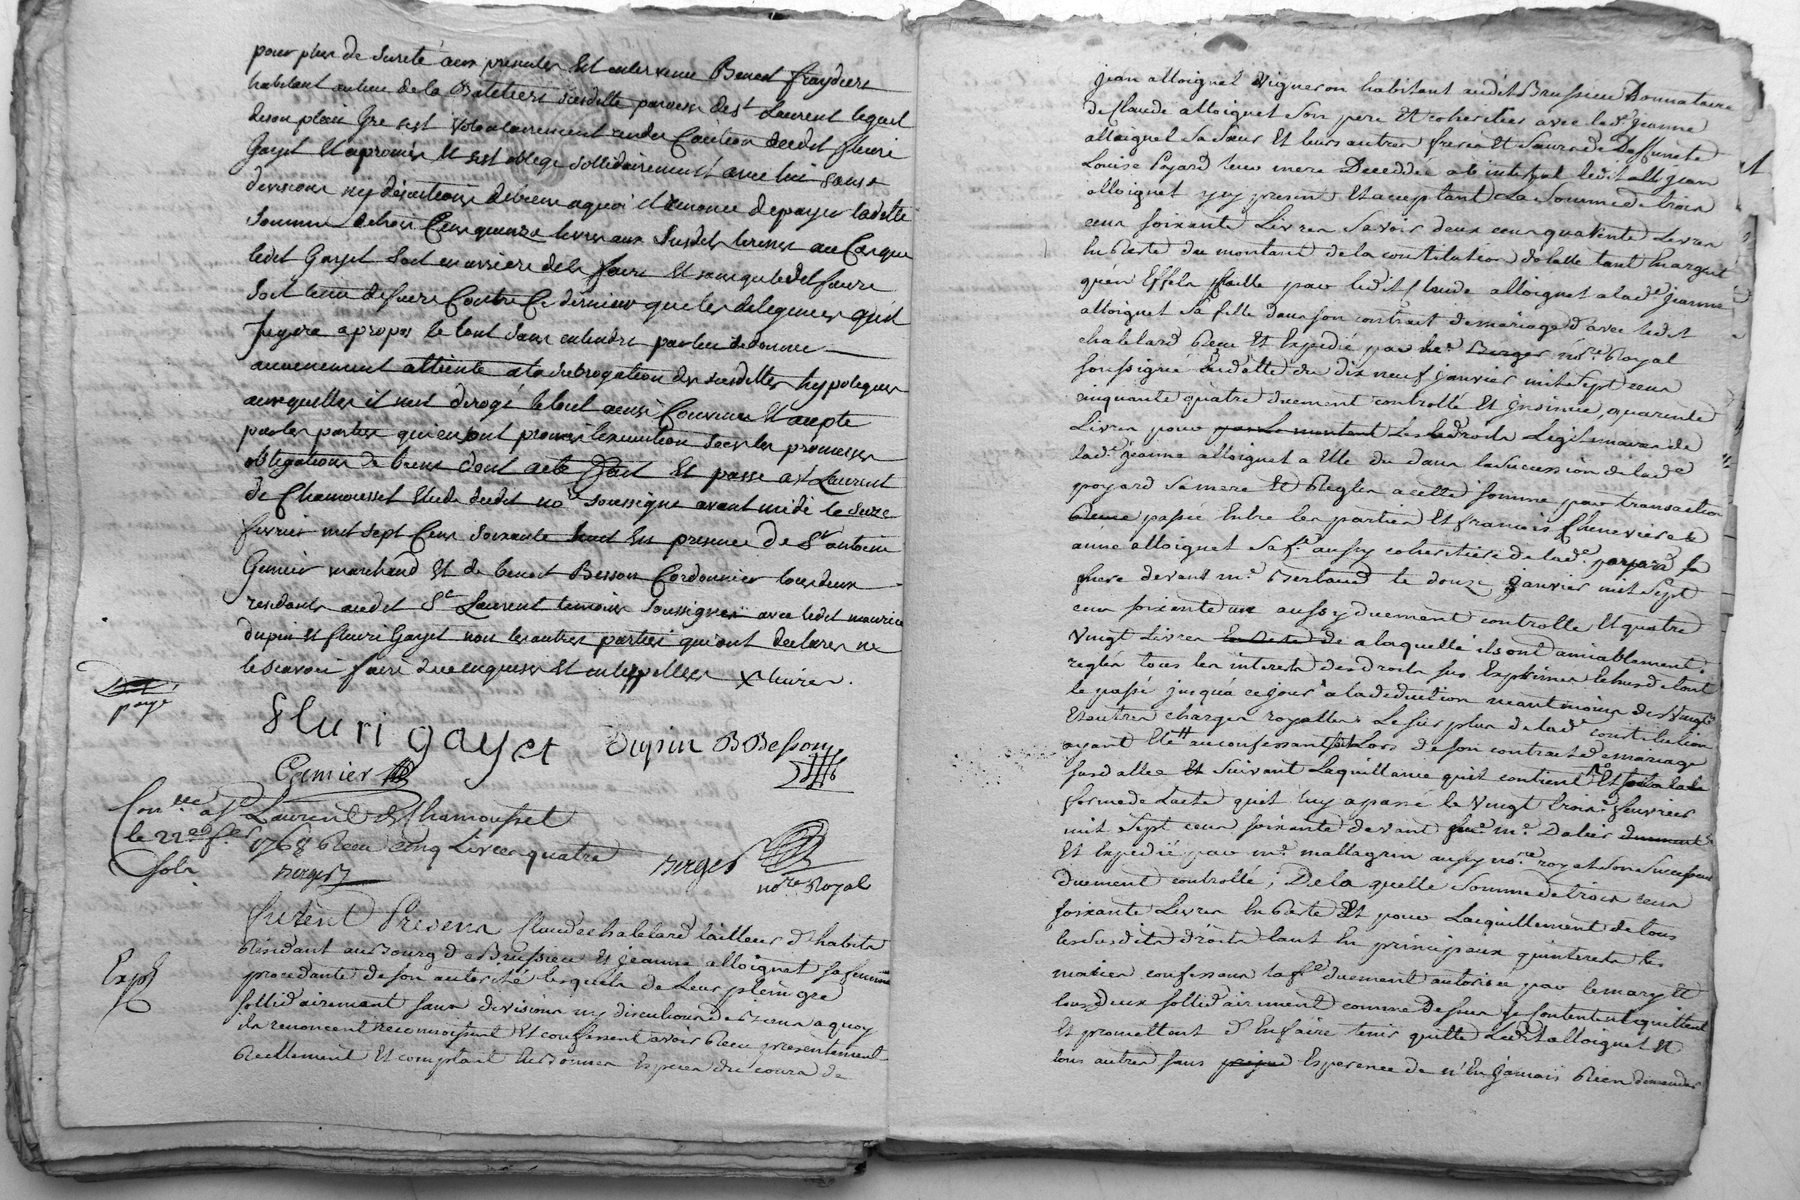 pour plus de sureté aux presentes Est intervenu Benoist fraydiere
habitant au lieu de la Bateliere susditte paroisse de st Laurent lequel
deson plein Gre sest volontairement rendu Caution dudit fleuri
Gayet Et a promis Et sest oblige sollidairement avec lui sans
division ny discution de biens a quoi il renonce de payer laditte
somme de trois Cens quinze livres aux susdits termes au Cas que
ledit Gayet soit en arriere de le faire Et sans que ledit faure
soit tenu de faire Contre Ce dernier que les diligences quil
Jugera apropos le tout sans entendre par lieu de donner
aucunement atteinte ala subrogation des susdittes hypoteques
auxquelles il nest derogé le tout ainsi Convenu Et accepte
par les parties qui en ont promis l'execution sous les promesses
obligations de biens dont acte Fait Et passe a st Laurent
de Chamousset Etude dudit nore soussigne avant midi le seize
fevrier mil sept Cens soixante huit En presence de Sr antoine
Gemier marchand Et de benoit Besson Cordonnier tous deux
residants audit St Laurent temoins soussignes avec ledit maurice
dupin Et fleuri Gayet non les autres parties qui ont declares ne
le scavoir faire de ce enquises Et interpelles x livres.
paye
fluri gayet dupin BBesson
Gemier
Con.lle a St Laurent de Chamousset
le 22e f.er 1768 Reçu cinq Livres quatre
sols Berger
Berger
nore Royal
Furent Presens Claude chatelard tailleur d'habits
Résidant au Bourg de Brussieu Et jeanne alloignet sa femme
procedante de son autorité lesquels de Leur plein gré
sollidairement sans division ny discution de biens a quoy
ils renoncent reconnoissent Et confessent avoir Reçu presentement
Reellement Et comptant En bonnes Especes du cours de
Exp.é
jean alloignet vigneron habitant audit Brussieu Donnataire
de Claude alloignet son pere Et coheritier avec lade jeanne
alloignet sa sœur Et leurs autres freres Et sœurs de Deffunte
Louise Poyard leur mere Decedée ab intestat ledit alt jean
alloignet icy present Et acceptant La Somme de trois
cens soixante Livres Savoir deux cens quatvinte Livres
En Reste du montant de la constitution dotalle tant En argent
qu'en Effets faitte par ledit Claude alloignet a lade jeanne
alloignet sa fille dans son contract de mariage d'avec ledit
chatelard Reçu Et Expedié par Me Berger nore Royal
soussigné En datte du dix neuf janvier mil sept cens
cinquante quatre duement controllé Et Insinué, quarente
Livres pour par Le montant Les droits Légitimaires de
lade jeanne alloignet a Elle dû dans la succession de lade
poyard sa mere Et Reglés a cette somme par transaction
Reçue passée Entre les parties Et francois Cheneviere Et
anne alloignet sa fe aussy coheritiere de lade poyard sa
mere devant me Bertaud le douze janvier mil sept
cens soixante un aussy duement controllé Et quatre
Vingt Livres En Reste de a laquelle ils ont amiablement
reglés tous les interets des droits sus Exprimés Echus de tout
le passé jusquà ce jour a la deduction neantmoins des vingte
Et autres charges royalles Le surplus de lade constitution
ayant Eté aux confessants lors de son contract de mariage
susdatté Et suivant La quittance quil contient
forme de L'acte quil luy a passé le Vingt trois fevrier
mil sept cens soixante devant feu me Dalier dument
Et Expedié par me mallagrin aussy nore royal son successeur
duement controllé; De la quelle Somme de trois cens
soixante Livres En Reste Et pour L'acquittement de tous
les susdits droits tant En principaux qu'interets les
mariés confessans la fe duement autorisée par le mary Et
tous deux sollidairement comme dessus se Contentent quittent
Et promettent d'En faire tenir quitte Ledit alloignet Et
tous autres sans Esperence de n'En jamais Rien demander